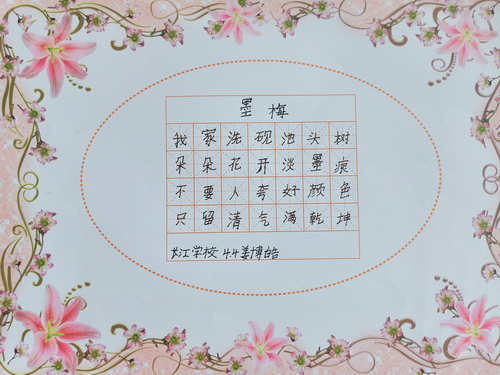 墨梅
我家洗砚池头树
朵朵花开淡墨痕
不要人夸好颜色
只留清气满乾坤
长江学校 4.4姜博皓